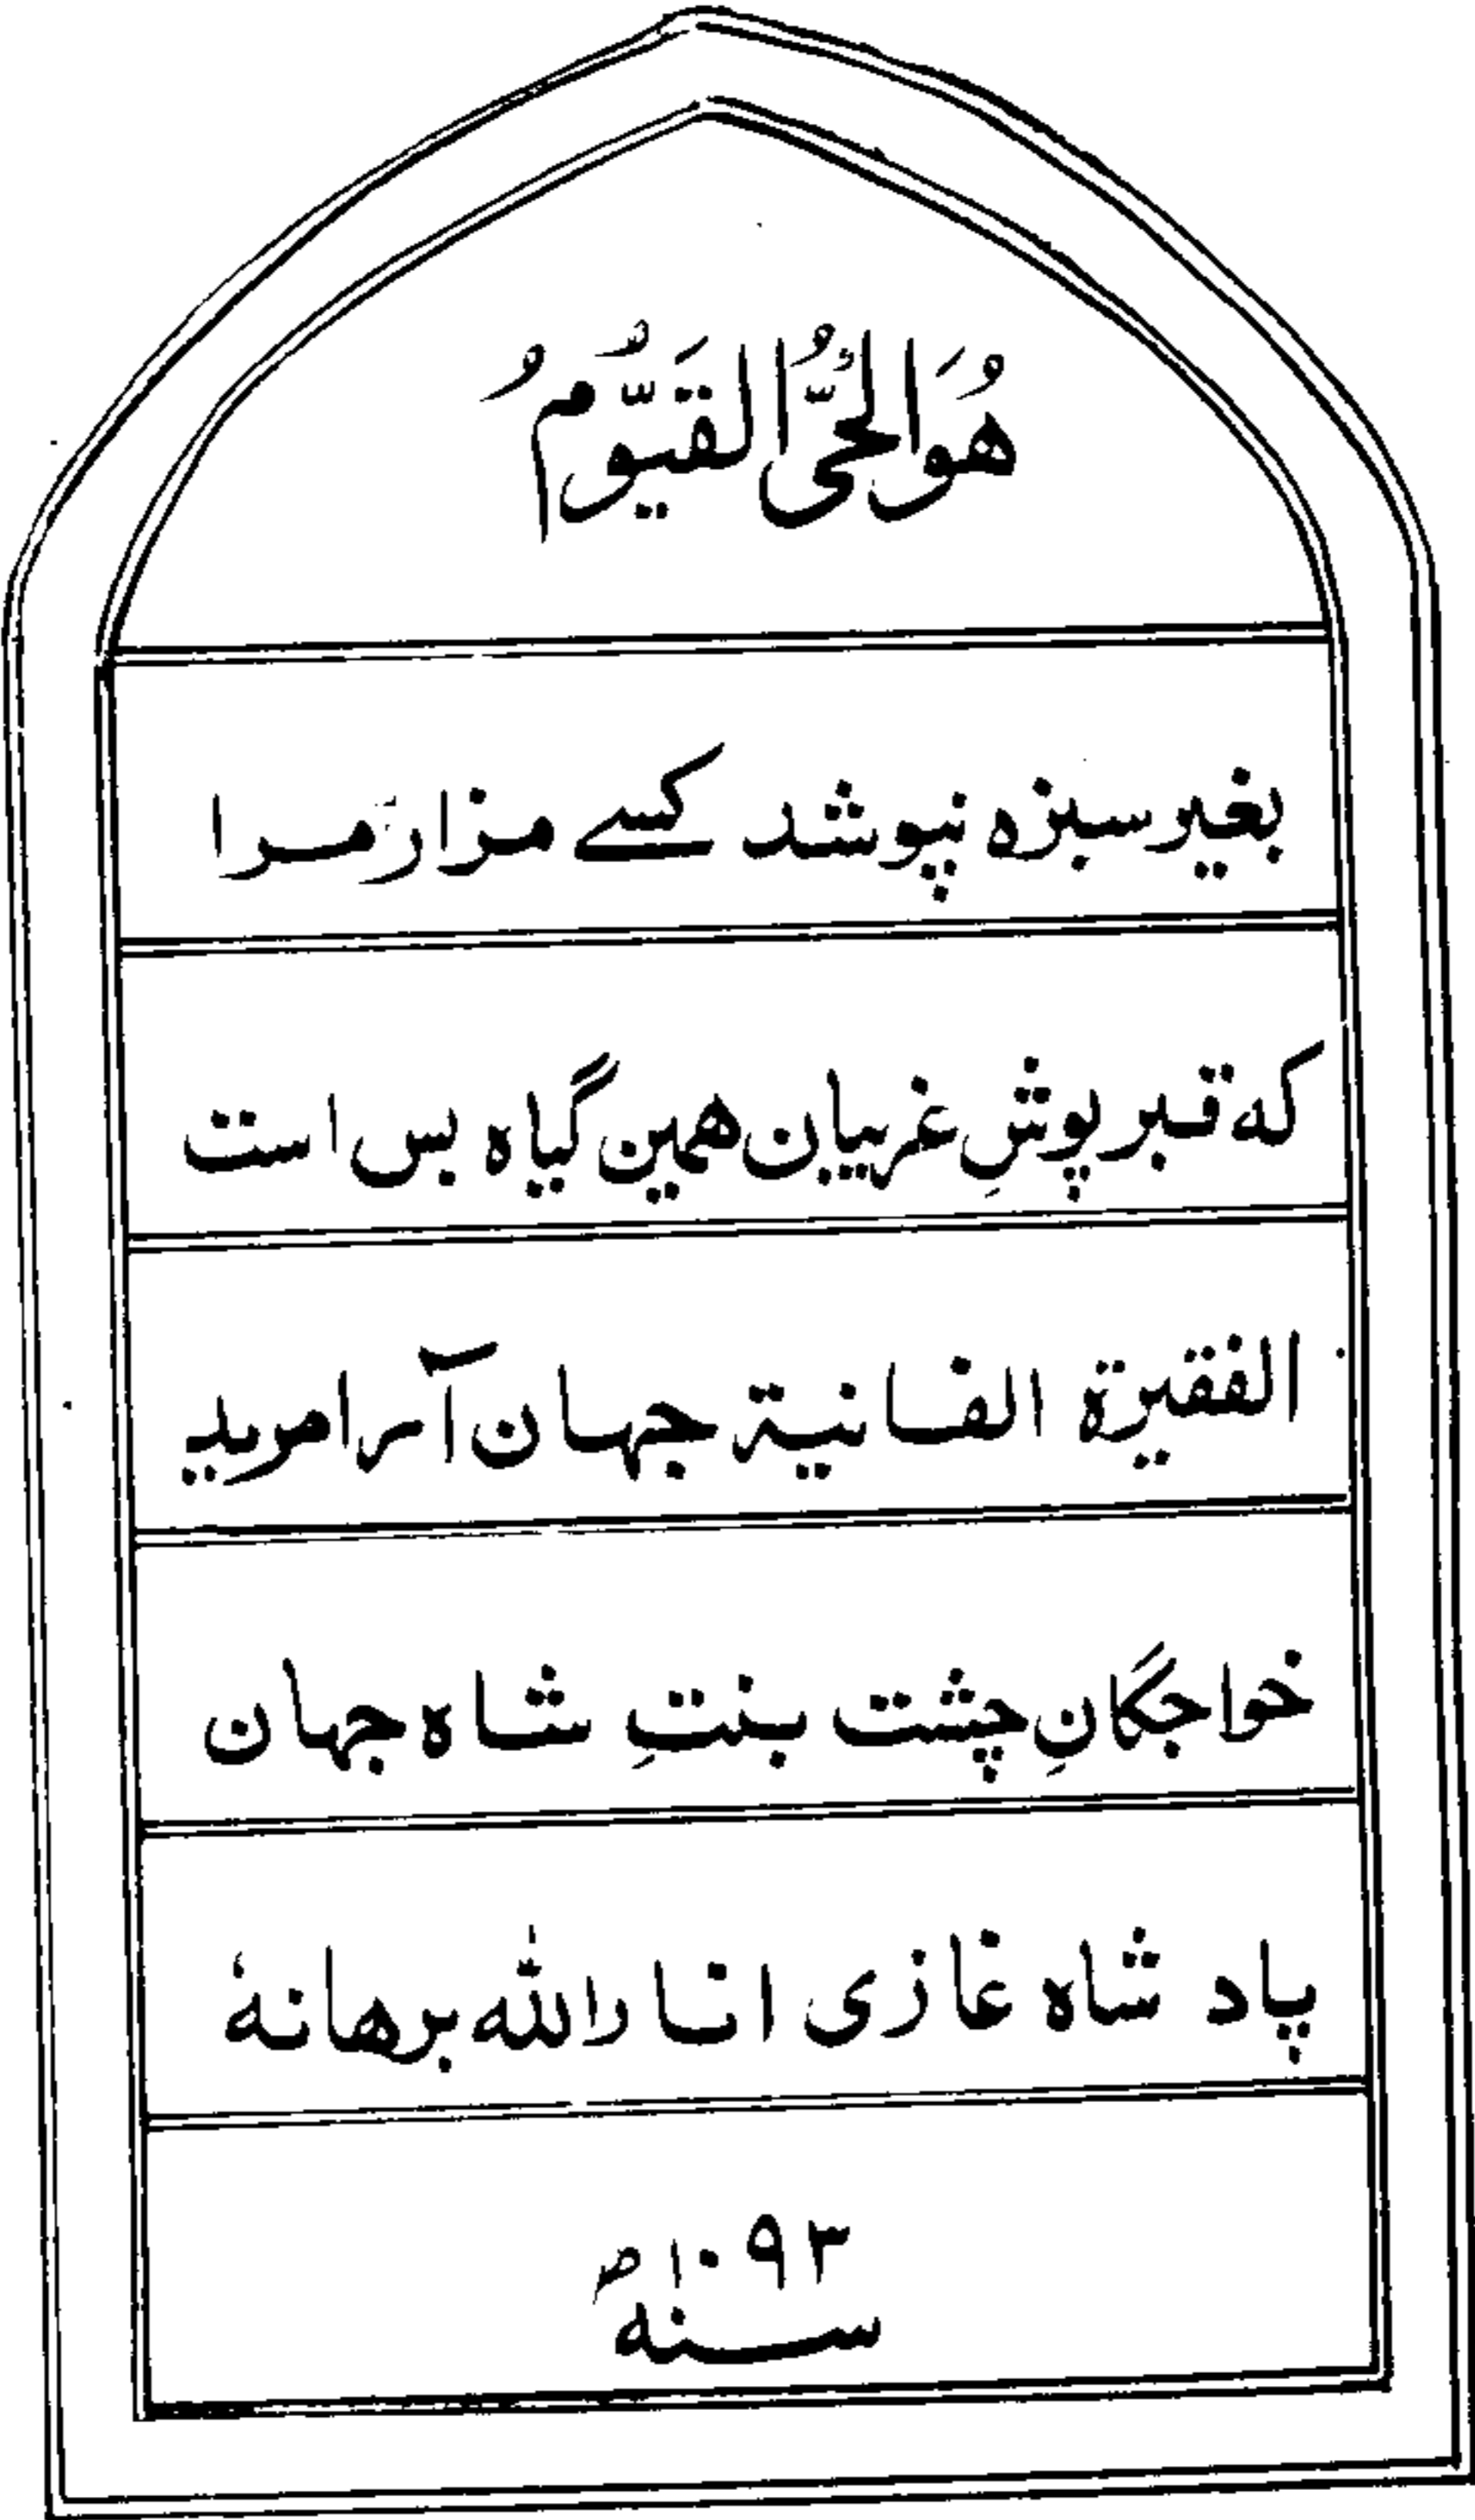 هُوَالْحَیُّ الْقَیُّومُ
بغیر سبزه نپوشد کسے مزار مرا
که قبر پوشِ غریبان همین گیاه بس است
الفقیرة الفانیة جهان آرا مرید
خواجگانِ چشت بنتِ شاه جهان
پاد شاه غازی انارالله برهانهٗ
۱۰۹۳
سنه